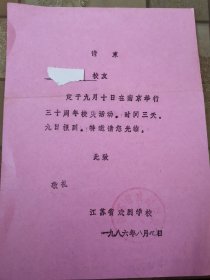 请柬
校友
定于九月十日在南京举行
三十周年校庆活动。时间三天。
九日报到。特邀请您光临。
此致
敬礼
江苏省戏剧学校
一九八六年八月 日